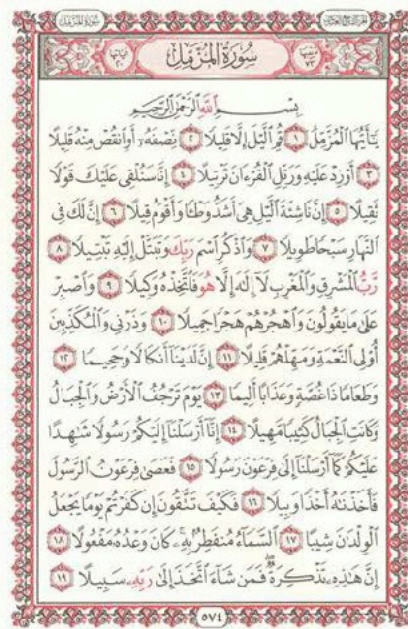 سُورَةُ المُزَّمِّل
بِسْمِ ٱللَّهِ ٱلرَّحْمَٰنِ ٱلرَّحِيمِ
يَٰٓأَيُّهَا ٱلْمُزَّمِّلُ ١ قُمِ ٱلَّيْلَ إِلَّا قَلِيلًا ٢ نِّصْفَهُۥٓ أَوِ ٱنقُصْ مِنْهُ قَلِيلًا
٣ أَوْ زِدْ عَلَيْهِ وَرَتِّلِ ٱلْقُرْءَانَ تَرْتِيلًا ٤ إِنَّا سَنُلْقِى عَلَيْكَ قَوْلًا
ثَقِيلًا ٥ إِنَّ نَاشِئَةَ ٱلَّيْلِ هِىَ أَشَدُّ وَطْـًٔا وَأَقْوَمُ قِيلًا ٦ إِنَّ لَكَ فِى
ٱلنَّهَارِ سَبْحًا طَوِيلًا ٧ وَٱذْكُرِ ٱسْمَ رَبِّكَ وَتَبَتَّلْ إِلَيْهِ تَبْتِيلًا ٨
رَّبُّ ٱلْمَشْرِقِ وَٱلْمَغْرِبِ لَآ إِلَٰهَ إِلَّا هُوَ فَٱتَّخِذْهُ وَكِيلًا ٩ وَٱصْبِرْ
عَلَىٰ مَا يَقُولُونَ وَٱهْجُرْهُمْ هَجْرًا جَمِيلًا ١٠ وَذَرْنِى وَٱلْمُكَذِّبِينَ
أُو۟لِى ٱلنَّعْمَةِ وَمَهِّلْهُمْ قَلِيلًا ١١ إِنَّ لَدَيْنَآ أَنكَالًا وَجَحِيمًا ١٢
وَطَعَامًا ذَا غُصَّةٍ وَعَذَابًا أَلِيمًا ١٣ يَوْمَ تَرْجُفُ ٱلْأَرْضُ وَٱلْجِبَالُ
وَكَانَتِ ٱلْجِبَالُ كَثِيبًا مَّهِيلًا ١٤ إِنَّآ أَرْسَلْنَآ إِلَيْكُمْ رَسُولًا شَٰهِدًا
عَلَيْكُمْ كَمَآ أَرْسَلْنَآ إِلَىٰ فِرْعَوْنَ رَسُولًا ١٥ فَعَصَىٰ فِرْعَوْنُ ٱلرَّسُولَ
فَأَخَذْنَٰهُ أَخْذًا وَبِيلًا ١٦ فَكَيْفَ تَتَّقُونَ إِن كَفَرْتُمْ يَوْمًا يَجْعَلُ
ٱلْوِلْدَٰنَ شِيبًا ١٧ ٱلسَّمَآءُ مُنفَطِرٌۢ بِهِۦ كَانَ وَعْدُهُۥ مَفْعُولًا ١٨
إِنَّ هَٰذِهِۦ تَذْكِرَةٌ فَمَن شَآءَ ٱتَّخَذَ إِلَىٰ رَبِّهِۦ سَبِيلًا ١٩
٥٧٤